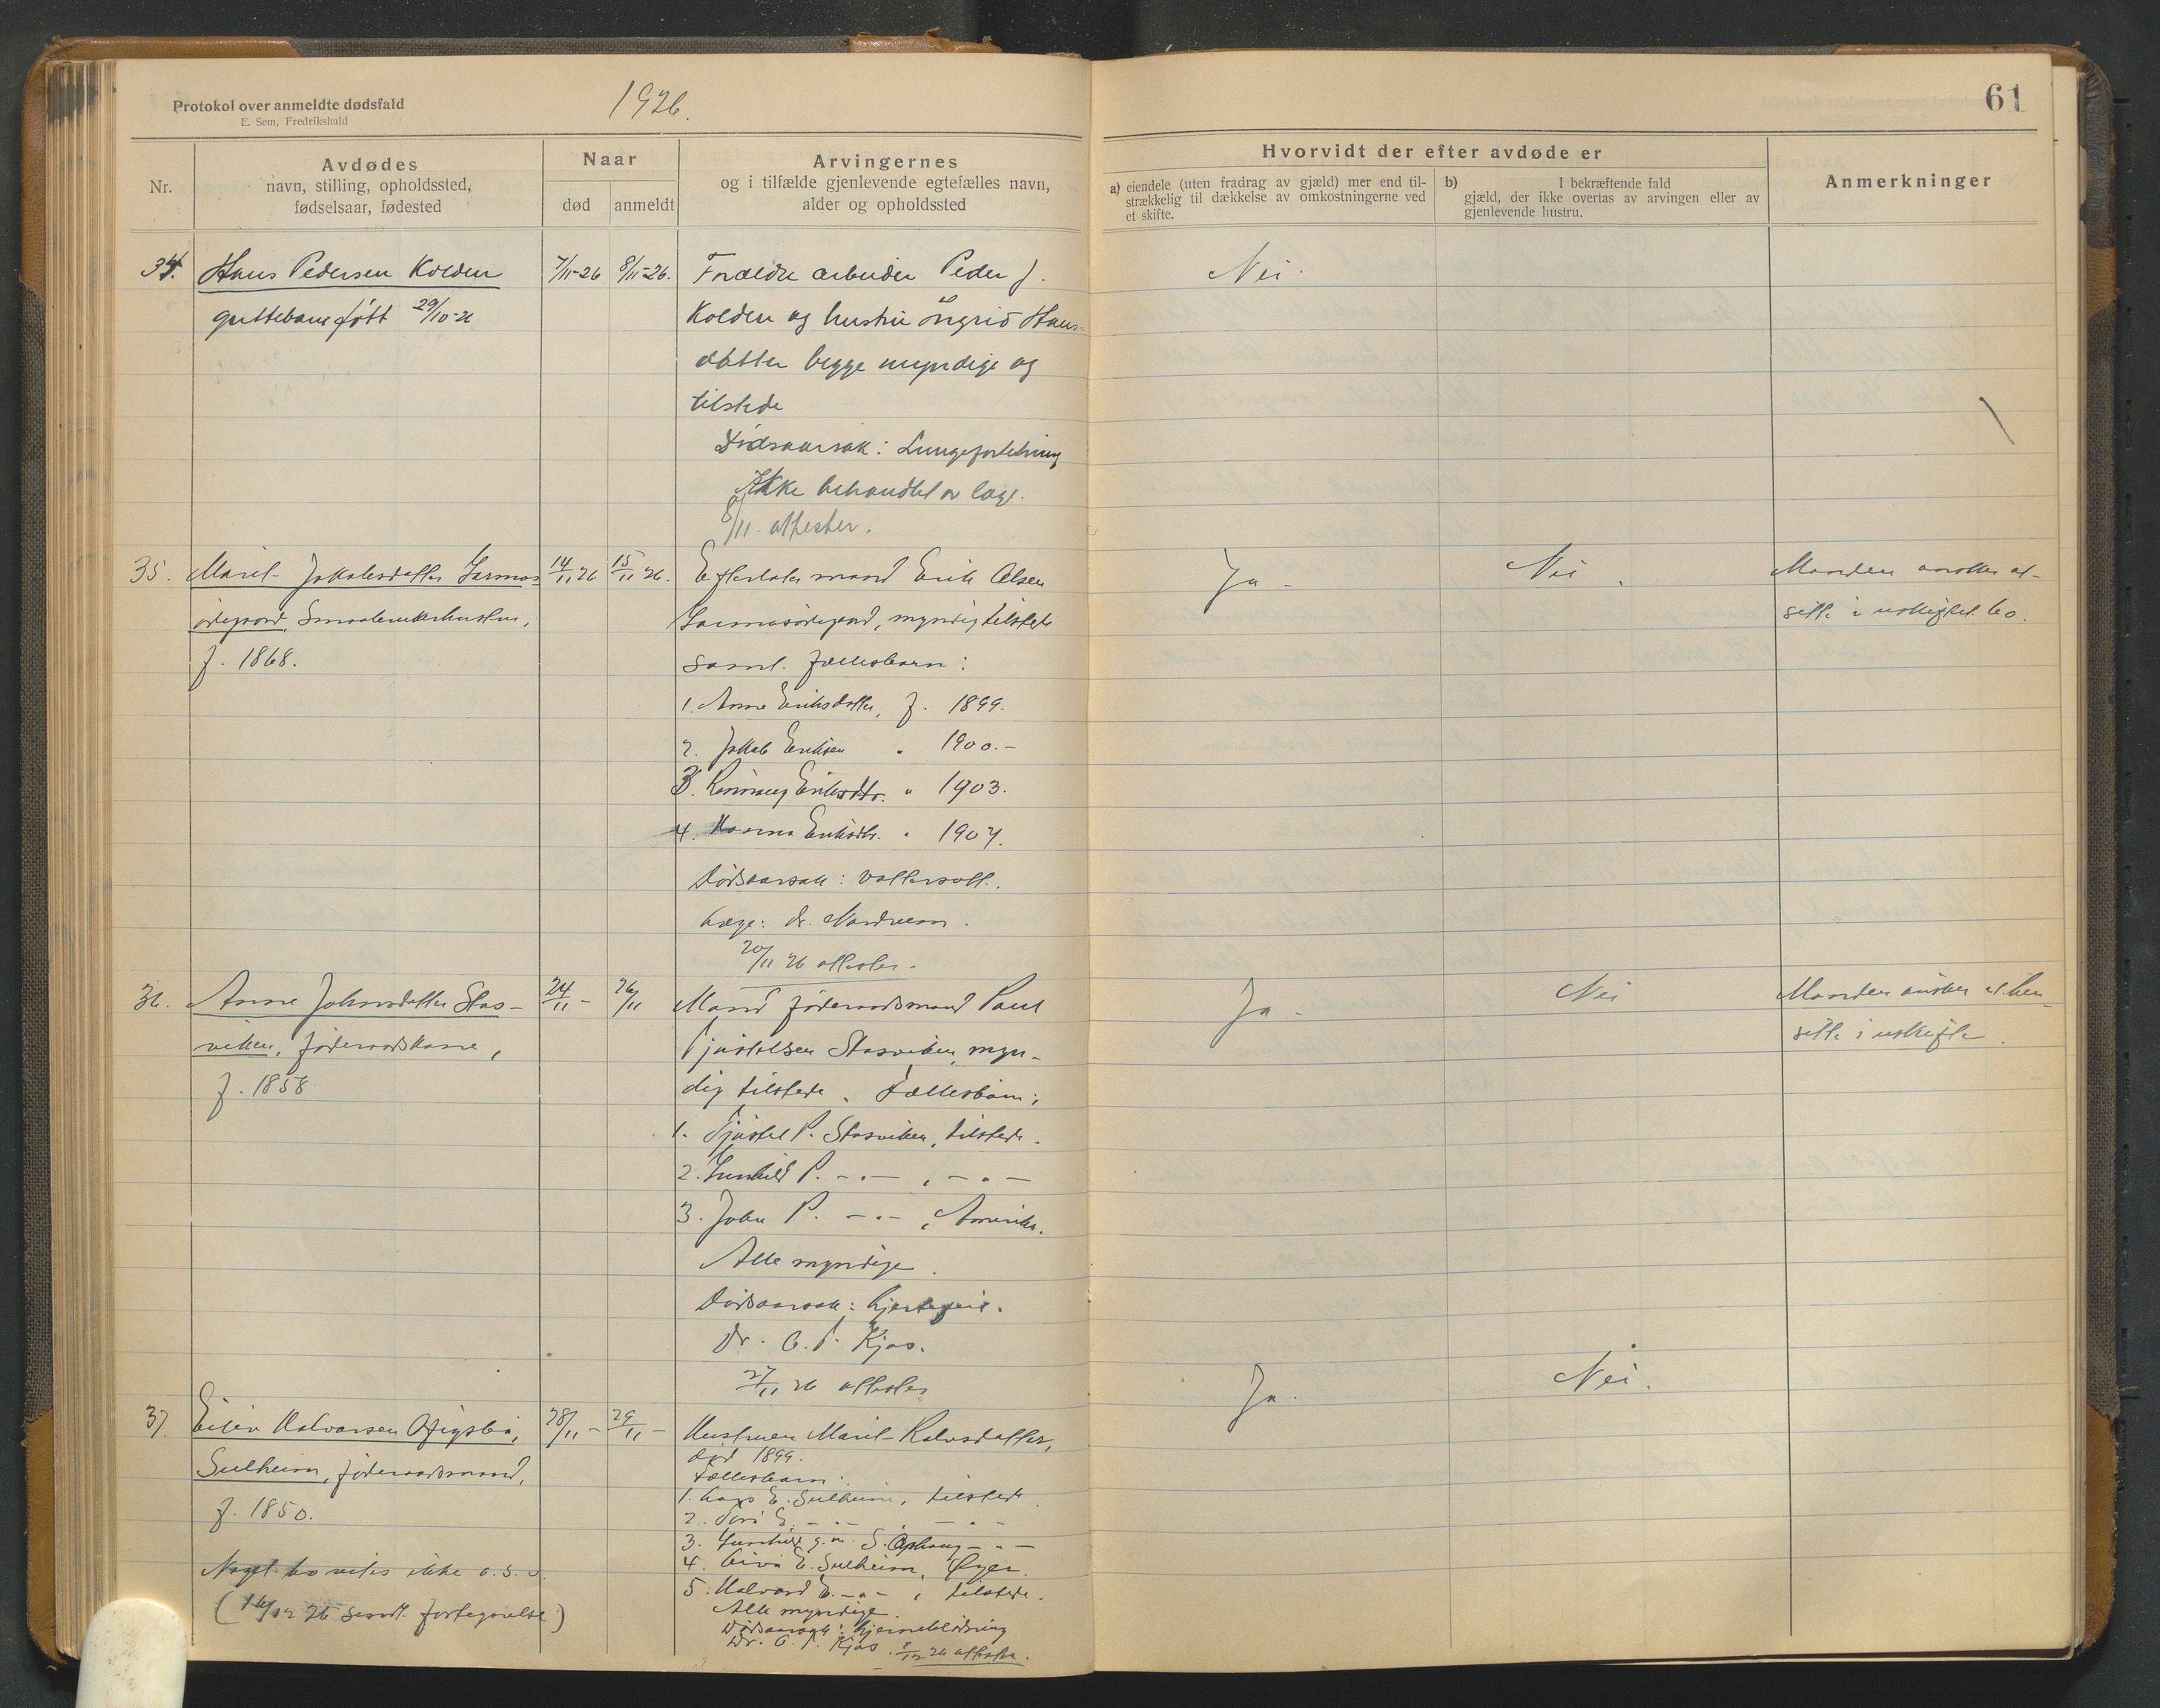 Protokol over anmeldte dødsfald
E. Sem, Fredrikshald
1926.
61
Nr.
Avdødes
navn, stilling, opholdssted,
fødselsaar, fødested
Naar
død
anmeldt
Arvingernes
og i tilfælde gjenlevende egtefælles navn,
alder og opholdssted
Hvorvidt der efter avdøde er
a) eiendele (uten fradrag av gjæld) mer end til-
strækkelig til dækkelse av omkostningerne ved
et skifte.
b) I bekræftende fald
gjæld, der ikke overtas av arvingen eller av
gjenlevende hustru.
Anmerkninger
34. Hans Pedersen Kolden
guttebarn født 29/10-26
7/11-26 8/11-26.
Forældre arbeider Peder J.
Kolden og hustru Ingrid Hans-
datter begge myndige og
tilstede
Dødsaarsak: Lungefortetning
Ikke behandlet av læge.
8/11. attester.
Nei.
35. Marit Jakobsdatter
f. 1868.
14/11 26 15/11 26.
Efterlater mand Erik Olsen
myndig tilstede
saml. fællesbarn:
1. Anne Eriksdatter, f. 1899.
2. Jakob Eriksen " 1900.-
3. Rønnaug Eriksdtr. " 1903.
4. Eriksdtr. " 1907.
Dødsaarsak: vattersott.
Læge: dr. Nordveen.
20/11 26 attester.
Ja -
Nei.
Manden ønsker at
sitte i uskiftet bo.
36. Anne Johnsdatter Stas-
viken, føderaadskone,
f. 1858
24/11 - 26/11
Mand føderaadsmand Paul
Tjøstelsen Stasviken, myn-
dig tilstede. Fællesbarn:
1. Tjøstel P. Stasviken, tilstede.
2. Gunhild P. -"- , -"-
3. John P. -"- , Amerika.
Alle myndige.
Dødsaarsak: hjertefeil.
Dr. O. T. Kjos.
27/11 26 attester
Ja -
Nei
Manden ønsker at hen-
sitte i uskifte.
37. Eiliv Halvorsen
Sulheim, føderaadsmand,
f. 1850.
28/11 - 29/11 -
Hustruen Marit Rolvsdatter,
død 1899.
Fællesbarn:
1. E. Sulheim, tilstede.
2. E. -"- , -"-
3. Gunhild g.m. S. -"-
4. E. Sulheim, Øyer.
5. Halvord E. -"- , tilstede.
Alle myndige.
Dødsaarsak: hjerneblødning
Dr. O. T. Kjos. 7/12 26 attester.
Ja.
Nei.
ikke o.s.v.
(16/12 26 sendt fortegnelse)